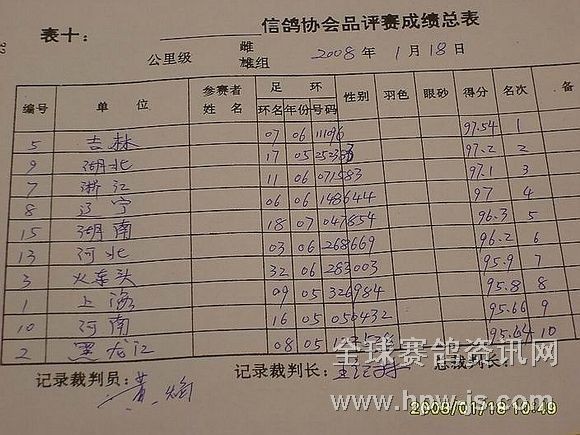 表十： 信鸽协会品评赛成绩总表
公里级 雌雄组 2008年 1月18日
编号 单位 参赛者姓名 足环 环名 年份 号码 性别 羽色 眼砂 得分 名次 备
5 吉林 07 06 97.54 1
9 湖北 17 05 97.2 2
7 浙江 11 06 97.1 3
8 辽宁 06 06 148644 97 4
15 湖南 18 07 047854 96.3 5
13 河北 03 06 268669 96.2 6
3 火车头 32 06 283003 95.9 7
1 上海 09 05 326984 95.8 8
10 河南 16 05 050432 95.66 9
2 黑龙江 08 05 95.64 10
记录裁判员： 记录裁判长： 总裁判长：
全球赛鸽资讯网
www.hpwjs.com
2008/01/18 10:49